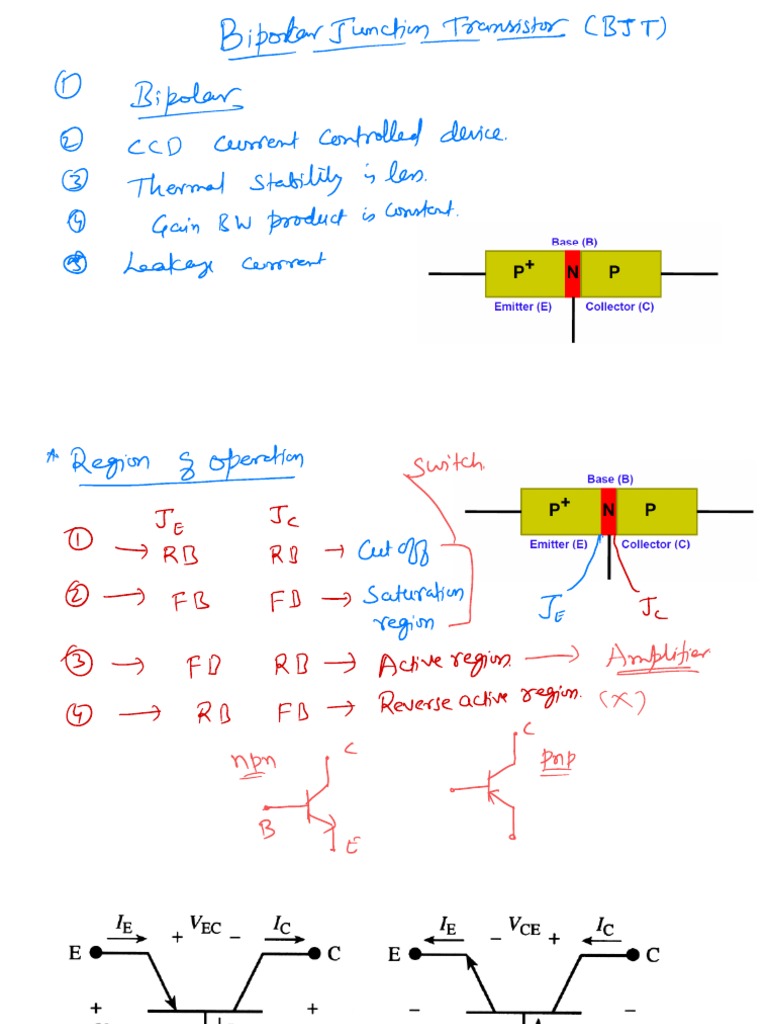 Bipolar Junction Transistor (BJT)
① Bipolar
② CCD Current Controlled device.
③ Thermal Stability is less.
④ Gain BW product is Constant.
⑤ Leakage current
Base (B)
P+ N P
Emitter (E) Collector (C)
* Region of operation
Switch
Base (B)
P+ N P
Emitter (E) Collector (C)
JE JC
JE JC
① → RB RB → Cut off
② → FB FB → Saturation
region
③ → FB RB → Active region. → Amplifier
④ → RB FB → Reverse active region. (X)
npn C
B
E
C pnp
IE + VEC − IC
E C
+ +
IE − VCE + IC
E C
− −